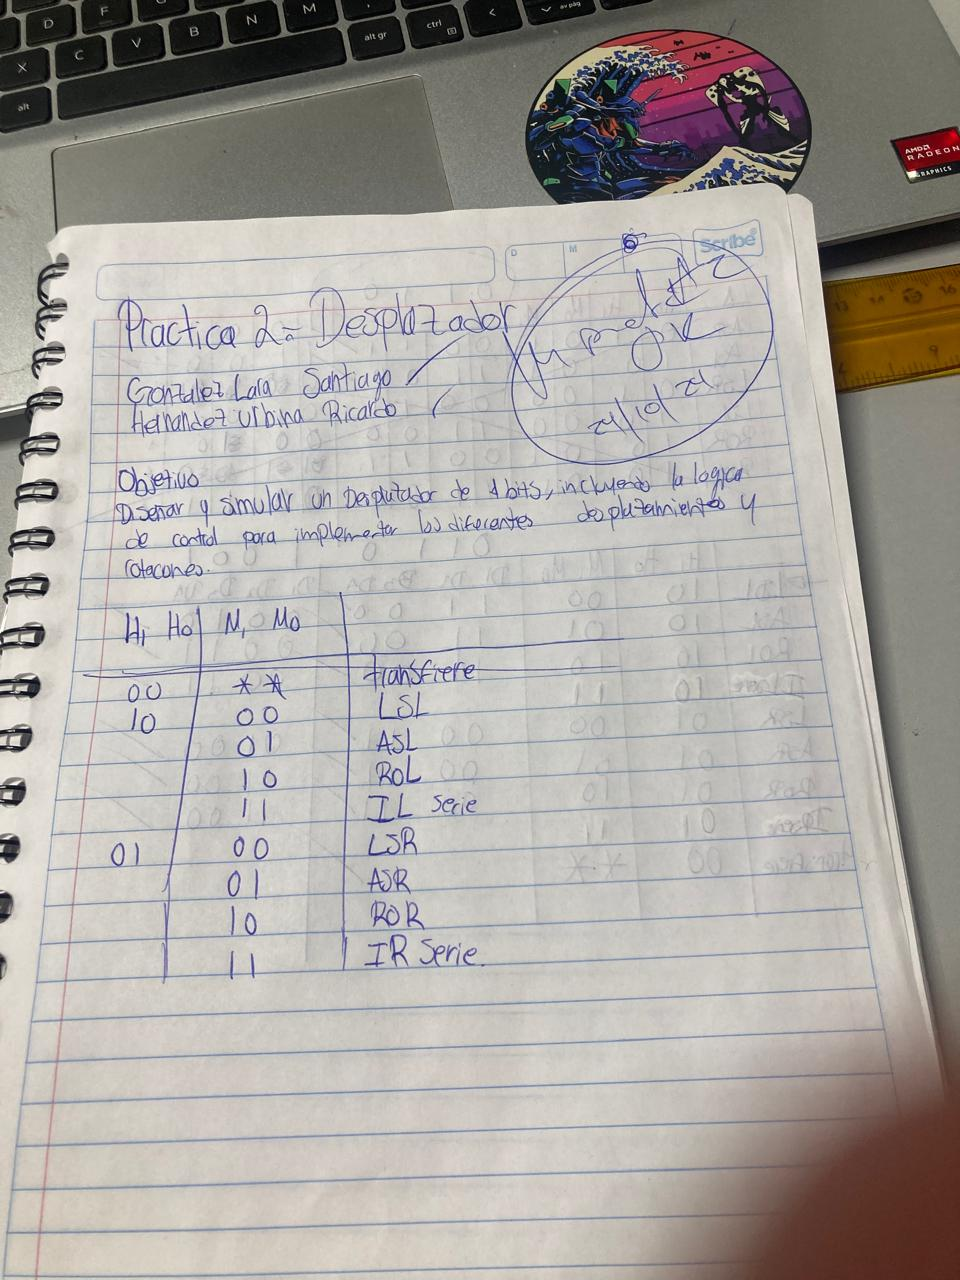 D F C V B N M X
alt
alt gr
ctrl
<
av pág
AMD
RADEON
GRAPHICS
D M
Scribe
13 14 16
9
Practica 2= Desplazador
Gonzalez Lara Santiago
Hernandez Urbina Ricardo
OK
21/10/21
Objetivo
Diseñar y simular un Desplazador de 4 bits, incluyendo la logica
de control para implementar los diferentes desplazamientos y
rotaciones.
H₁ H₀ M₁ M₀
00 ** transfiere
10 00 LSL
01 ASL
10 ROL
11 IL Serie
01 00 LSR
01 ASR
10 ROR
11 IR Serie.